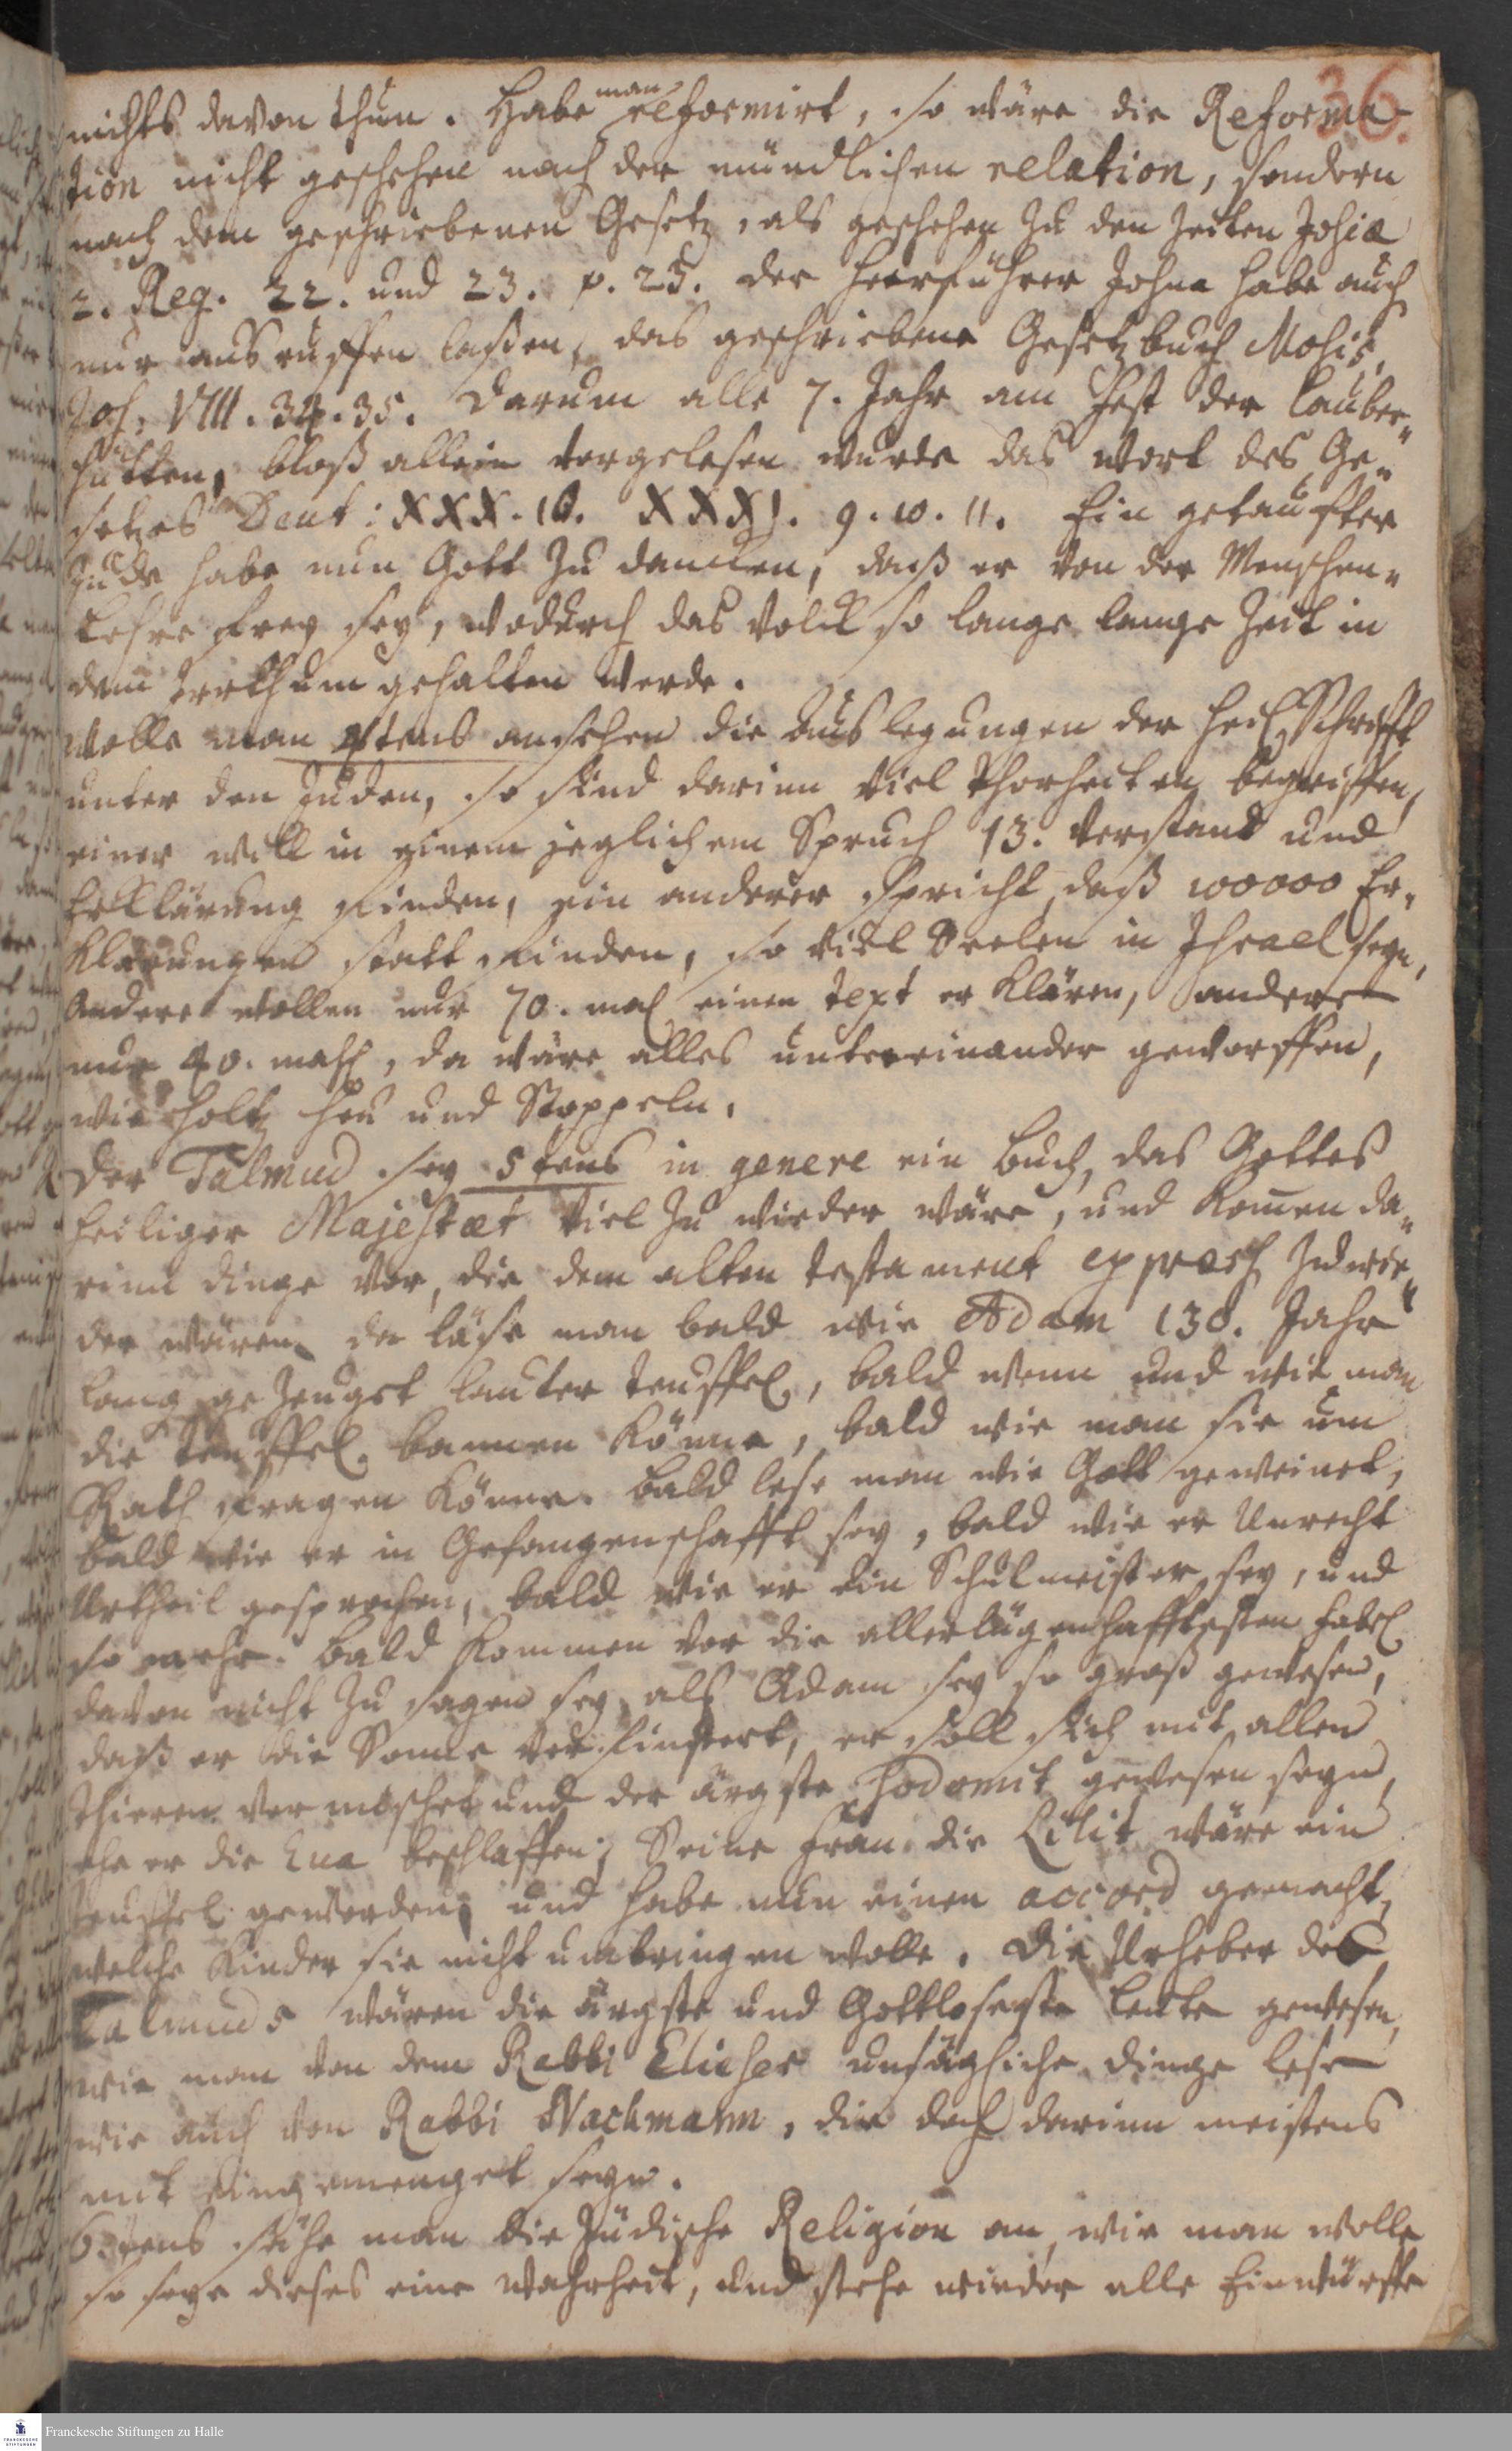 36.
nichts davon thun. Habe man reformirt, so wäre die Reforma-
tion nicht geschehen nach der mündlichen relation, sondern
nach dem geschriebenen Gesetz, als geschehen zu den Zeiten Josiæ
2. Reg. 22. und 23. p. 25. der Heerführer Josua habe auch
nur ausruffen laßen, das geschriebene Gesetzbuch Mosis,
Jos. VIII. 34. 35. Darum alle 7. Jahr am Fest der Lauber„
hütten, bloß allein vorgelesen wurde das Wort des Ge„
setzes Deut: XXX. 10. XXXI. 9. 10. 11. Ein getauffter
Jude habe nun Gott zu dancken, daß er von der Menschen„
Lehre frey sey, wodurch das Volck so lange lange Zeit in
dem Irrthum gehalten werde.
Wolle man 4tens ansehen die Auslegungen der Heil. Schrifft
unter den Juden, so sind darinn viel Thorheiten begriffen,
einer will in einem jeglichem Spruch 13. Verstand und
Erklärung finden, ein anderer spricht, daß 100000 Er„
klärungen statt finden, so viel Seelen in Israel seyn,
Andere wollen nur 70. mal einen text erklären, andere
nur 40. mahl, da wäre alles untereinander geworffen,
wie Holtz Heu und Stoppeln.
Der Talmud sey 5tens in genere ein Buch, das Gottes
heiliger Majestæt viel zu wieder wäre, und komen da„
rinn dinge vor, die dem alten testament express zuwie„
der wären, da läse man bald wie Adam 130. Jahr
lang gezeuget lauter teuffel, bald wenn und wie man
die teuffel bannen könne, bald wie man sie um
Rath fragen könne. bald lese man wie Gott geweinet,
bald wie er in Gefangenschafft sey, bald wie er Unrecht
Urtheil gesprochen, bald wie er ein Schulmeister sey, und
so mehr. bald kommen vor die allerlügenhafftesten fabel
davon nicht zu sagen sey, als Adam sey so groß gewesen,
daß er die Sonne verfinstert, er soll sich mit allen
Thieren vermischet und der ärgste Sodomit gewesen seyn,
ehe er die Eva beschlaffen; Seine Frau die Lilit wäre ein
teuffel geworden, und habe nun einen accord gemacht,
welche Kinder sie nicht umbringen wolle. Die Urheber des
Talmuds wären die ärgste und Gottloseste Leute gewesen,
wie man von dem Rabbi Elieser unsägliche dinge lese
wie auch von Rabbi Nachmann, die doch darinn meistens
mit eingemenget seyn.
6tens sähe man die Jüdische Religion an, wie man wolle
so seye dieses eine Wahrheit, und stehe wieder alle Einwürffe
Franckesche Stiftungen zu Halle